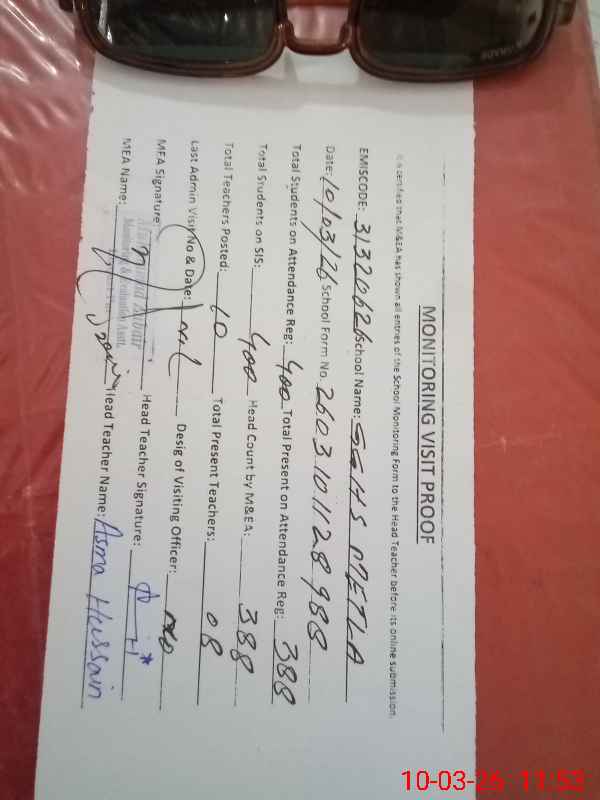 MONITORING VISIT PROOF
It is certified that M&EA has shown all entries of the School Monitoring Form to the Head Teacher before its online submission.
EMISCODE: 31320626 School Name: GGHS METLA
Date: 10/03/26 School Form No. 2603101128988
Total Students on Attendance Reg: 400 Total Present on Attendance Reg: 388
Total Students on SIS: 400 Head Count by M&EA: 388
Total Teachers Posted: 10 Total Present Teachers: 08
Last Admin Visit No & Date: Desig of Visiting Officer:
MEA Signature: Head Teacher Signature:
MEA Name: Head Teacher Name: Asma Hussain
10-03-26 11:53